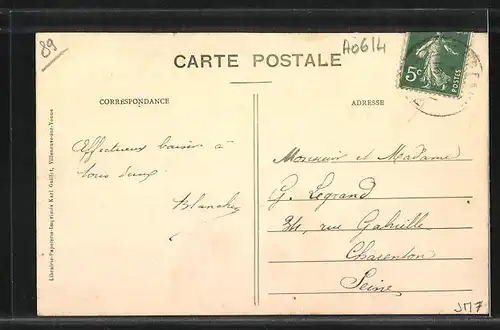 89
A0614
CARTE POSTALE
5c
POSTES
CORRESPONDANCE
ADRESSE
Affectueux baiser à
tous deux
Blanche
Monsieur et Madame
G. Legrand
34, rue Gabrielle
Charenton
Seine
Librairie-Papeterie-Imprimerie Karl Guillot, Villeneuve-sur-Yonne
JM7